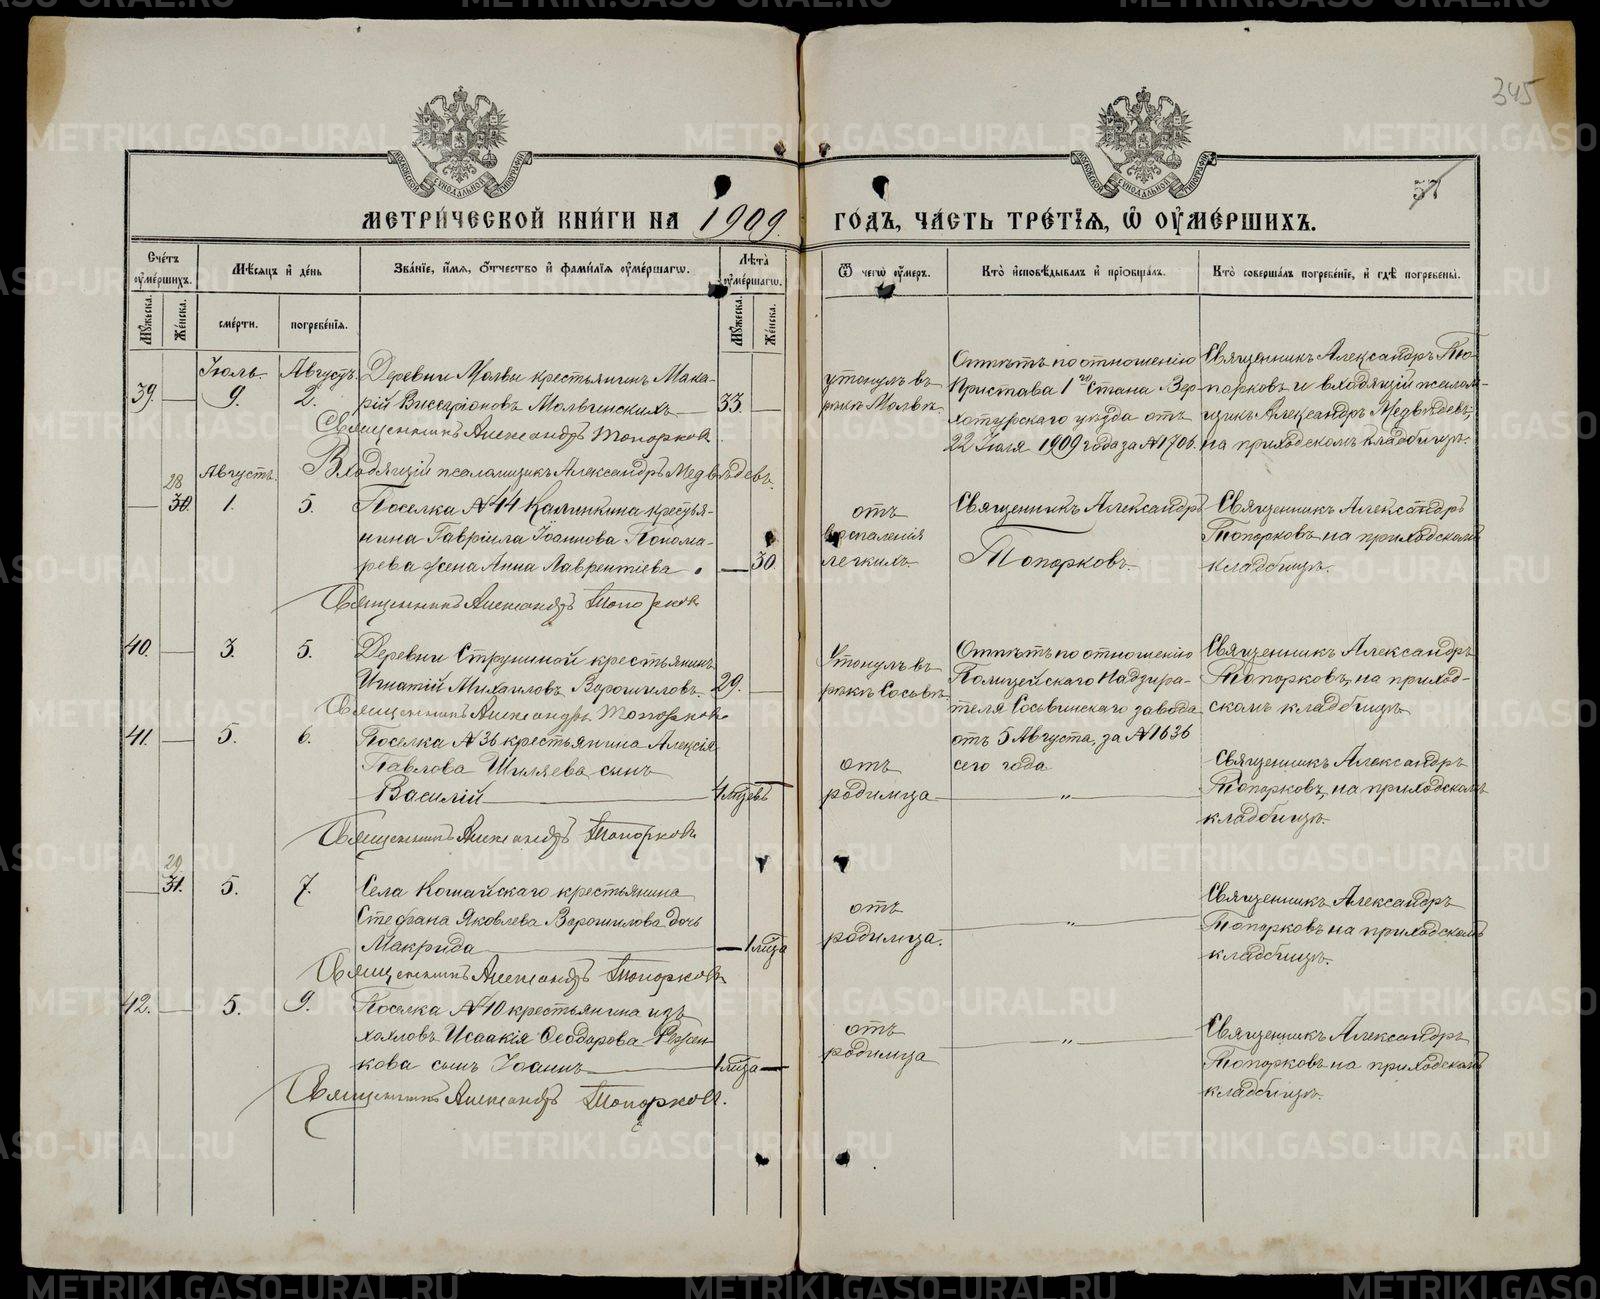 345
57
МОСКОВСКОЙ СѴНОДАЛЬНОЙ ТИПОГРАФІИ
МОСКОВСКОЙ СѴНОДАЛЬНОЙ ТИПОГРАФІИ
МЕТРИ́ЧЕСКОЙ КНИ́ГИ НА 1909 ГО́ДЪ, ЧА́СТЬ ТРЕ́ТІѦ, Ѡ҆ ОУ҆МЕ́РШИХЪ.
Сче́тъ оу҆ме́ршихъ.
Мꙋ́жеска.
Же́нска.
Мѣ́сѧцъ и҆ де́нь
сме́рти.
погребе́нїѧ.
Зва́нїе, и҆́мѧ, ѻ҆́тчество и҆ фами́лїѧ оу҆ме́ршагѡ.
Лѣ́та оу҆ме́ршагѡ.
Мꙋ́жеска.
Же́нска.
Ѿ чегѡ̀ оу҆́меръ.
Кто̀ и҆сповѣ́дывалъ и҆ прїѡбща́лъ.
Кто̀ соверша́лъ погребе́нїе, и҆ гдѣ̀ погребены̀.
39. — Іюль 9. Августъ 2.
Деревни Молвы крестьянинъ Мака-
рій Виссаріоновъ Молвинскихъ 33. —
Священникъ Александръ Топорковъ.
Входящій псаломщикъ Александръ Медвѣдевъ.
утонулъ въ
рѣкѣ Молвѣ.
Отпѣтъ по отношенію
Пристава 1го Стана Вер-
хотурскаго уѣзда отъ
22 Іюля 1909 года за № 1706.
Священникъ Александръ То-
порковъ и входящій псалом-
щикъ Александръ Медвѣдевъ,
на приходскомъ кладбищѣ.
— 28 30. Августъ 1. 5.
Поселка № 44 Калинкина крестья-
нина Гавріила Іоаннова Понома-
рева жена Анна Лаврентіева — 30.
Священникъ Александръ Топорковъ
отъ
воспаленія
легкихъ
Священникъ Александръ
Топорковъ.
Священникъ Александръ
Топорковъ на приходскомъ
кладбищѣ.
40. — 3. 5.
Деревни Струниной крестьянинъ
Игнатій Михаиловъ Ворошиловъ 29. —
Священникъ Александръ Топорковъ
Утонулъ въ
рѣкѣ Сосьвѣ
Отпѣтъ по отношенію
Полицейскаго Надзира-
теля Сосьвинскаго завода
отъ 5 Августа, за № 1636
сего года
Священникъ Александръ
Топорковъ, на приход-
скомъ кладбищѣ
41. — 5. 6.
Поселка № 36 крестьянина Алексія
Павлова Шиляева сынъ
Василій 4 мцевъ
Священникъ Александръ Топорковъ
отъ
родимца
— „ —
Священникъ Александръ
Топорковъ, на приходскомъ
кладбищѣ
— 29 31. 5. 7.
Села Кошайскаго крестьянина
Стефана Яковлева Ворошилова дочь
Макрида — 1 мца
Священникъ Александръ Топорковъ
отъ
родимца.
— „ —
Священникъ Александръ
Топорковъ на приходскомъ
кладбищѣ.
42. — 5. 9.
Поселка № 10 крестьянина изъ
хохловъ Исаакія Ѳеодорова
кова сынъ Іоаннъ 1 мца —
Священникъ Александръ Топорковъ.
отъ
родимца
— „ —
Священникъ Александръ
Топорковъ на приходскомъ
кладбищѣ.
METRIKI.GASO-URAL.RU